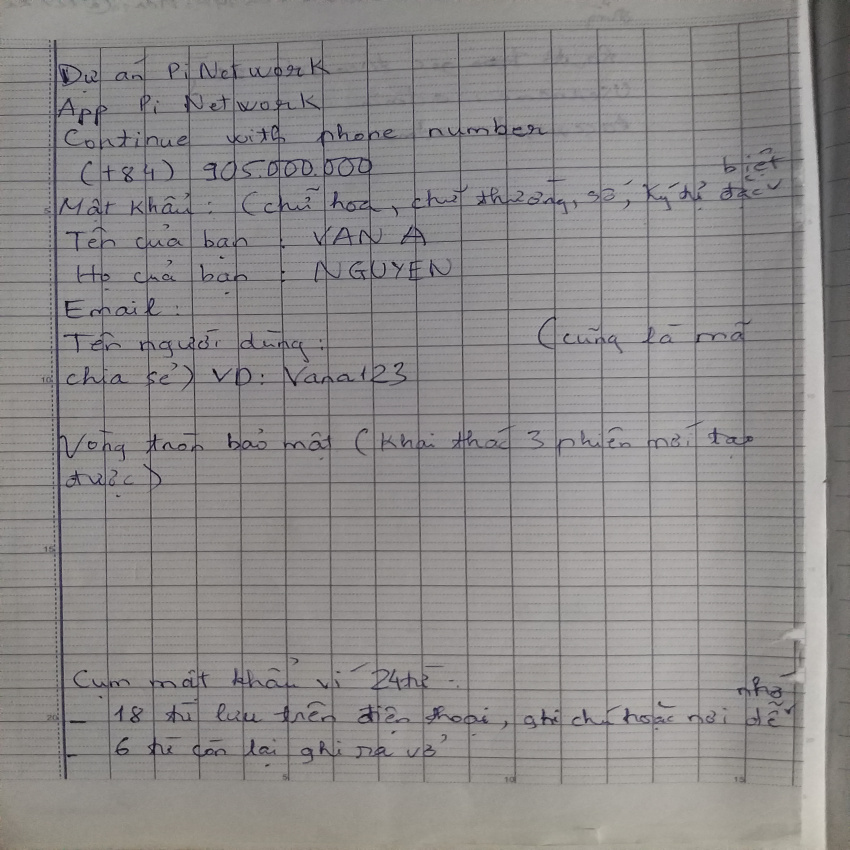 Dự án Pi Network
App Pi Network
Continue with phone number
(+84) 905.000.000
Mật khẩu: (chữ hoa, chữ thường, số, ký tự đặc biệt
Tên của bạn : VAN A
Họ của bạn : NGUYEN
Email :
Tên người dùng: (cũng là mã
chia sẻ) VD: Vana123
Vòng tròn bảo mật (Khai thác 3 phiên mới tạo
được)
Cụm mật khẩu ví 24 từ:
- 18 từ lưu trên điện thoại, ghi chú hoặc nơi dễ nhớ
- 6 từ còn lại ghi ra vở